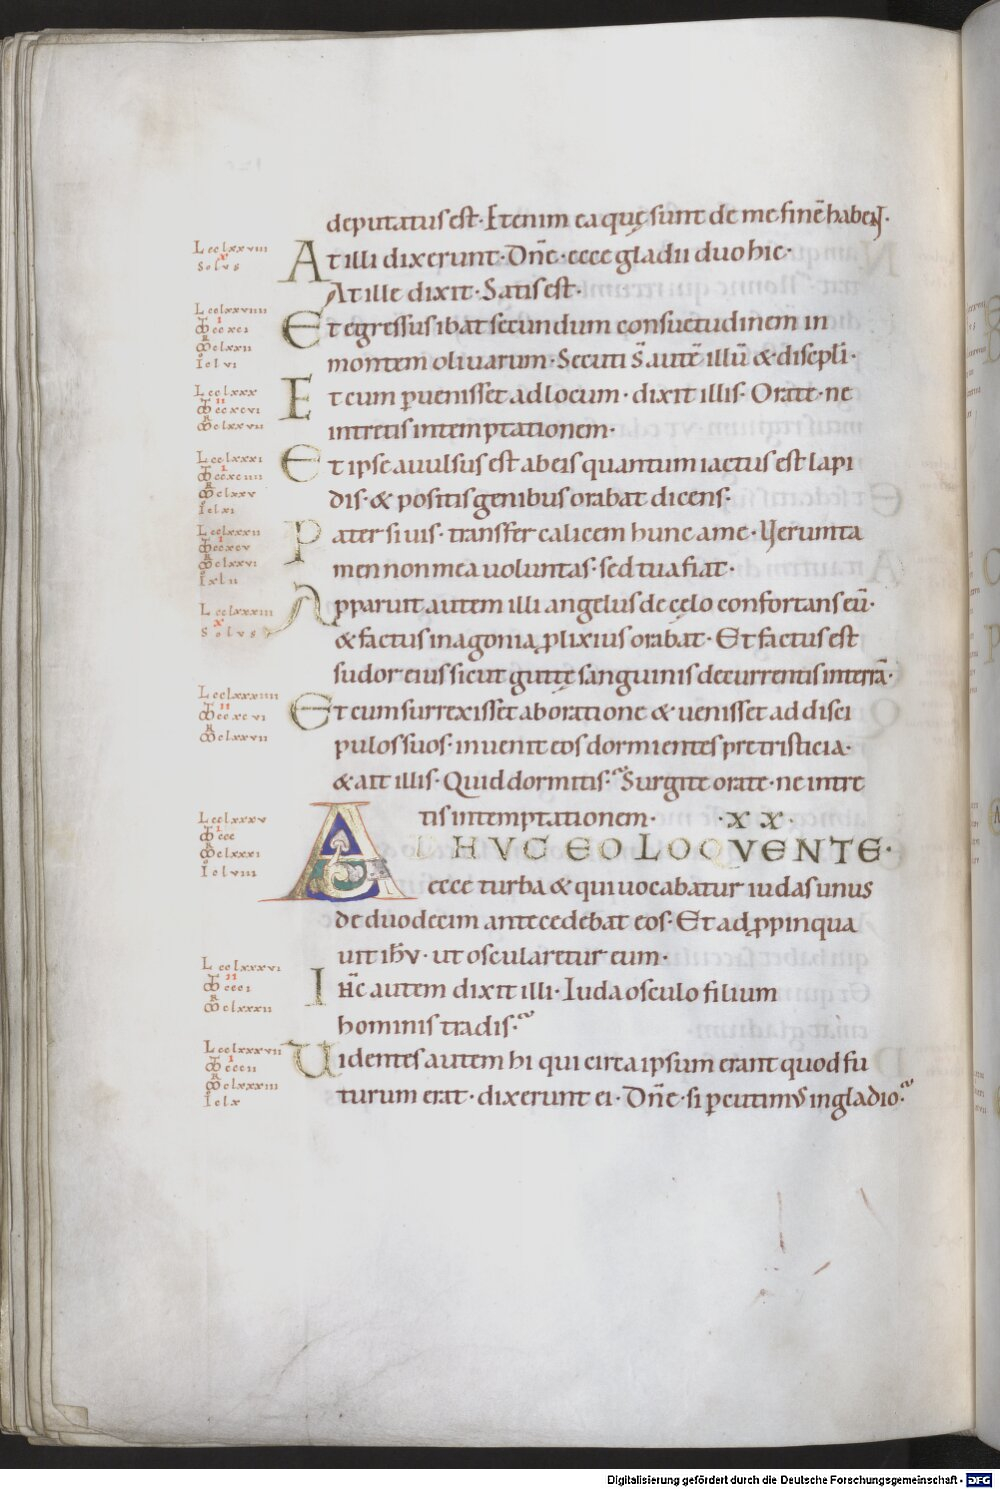 deputatus est· Etenim ea quę sunt de me finē habeN̄·
L cclxxviii
x
Solus
At illi dixerunt· Dn̄e· ecce gladii duo hic·
At ille dixit· Satis est·
L cclxxviiii
Et egressus ibat secundum consuetudinem in
montem olivarum· Secuti s̄ autē illū & discipli·
L cclxxx
Et cum pvenisset ad locum· dixit illis· Orate· ne
intretis in temptationem·
L cclxxxi
Et ipse avulsus est ab eis quantum iactus est lapi
dis· & positis genibus orabat dicens·
L cclxxxii
Pater si vis· transfer calicem hunc a me· Verunta
men non mea voluntas· sed tua fiat·
L cclxxxiii
x
Solus
Apparuit autem illi angelus de cęlo confortans eū·
& factus in agonia plixius orabat· Et factus est
sudor eius sicut guttę sanguinis decurrentis in terrā·
L cclxxxiiii
Et cum surrexisset ab oratione & venisset ad disci
pulos suos· invenit eos dormientes pre tristicia·
& ait illis· Quid dormitis· Surgite orate· ne intre
tis in temptationem· ·xx·
L cclxxxv
ADHVC EO LOQVENTE·
ecce turba & qui vocabatur iudas unus
de duodecim antecedebat eos· Et adppinqua
vit ihv· ut oscularetur eum·
L cclxxxvi
Ih̄c autem dixit illi· Iuda osculo filium
hominis tradis·
L cclxxxvii
Videntes autem hi qui cirta ipsum erant quod fu
turum erat· dixerunt ei· Dn̄e· si pcutimus in gladio·
Digitalisierung gefördert durch die Deutsche Forschungsgemeinschaft - DFG